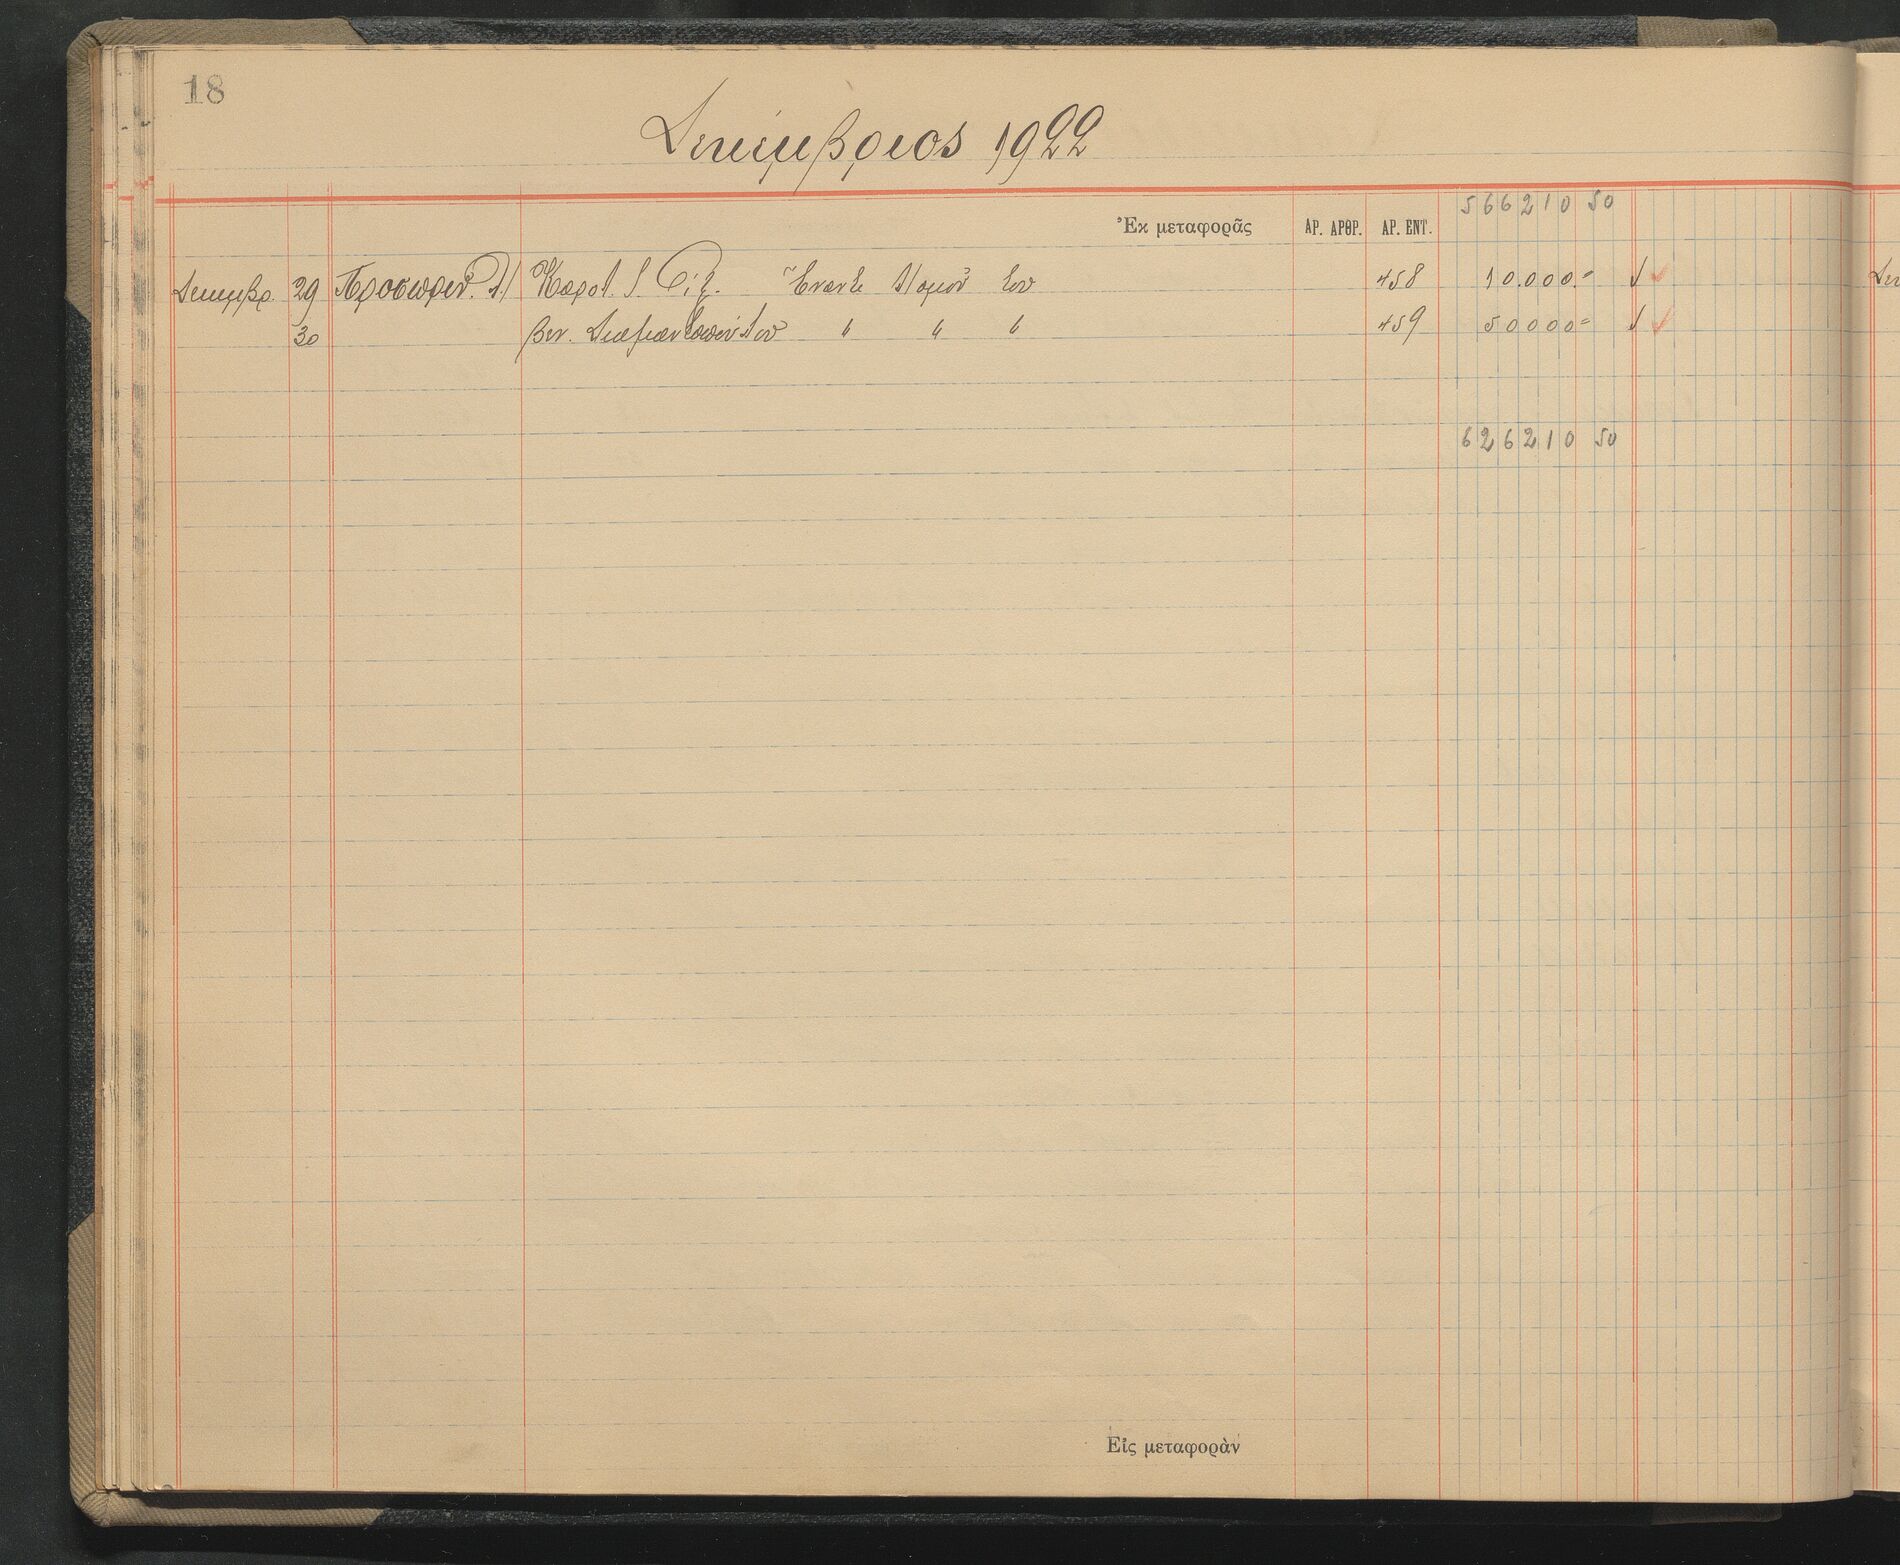 18
Δεκέμβριος 1922
Ἐκ μεταφορᾶς ΑΡ. ΑΡΘΡ. ΑΡ. ΕΝΤ. 566210 50
Δεκεμβρ. 29 Προσωριν. Λ/ Καρολ. Ἔναντι Λ/σμοῦ του 458 10.000.=
30 Βεν. Διαμαντοπούλου " " " 459 50000=
626210 50
Εἰς μεταφορὰν